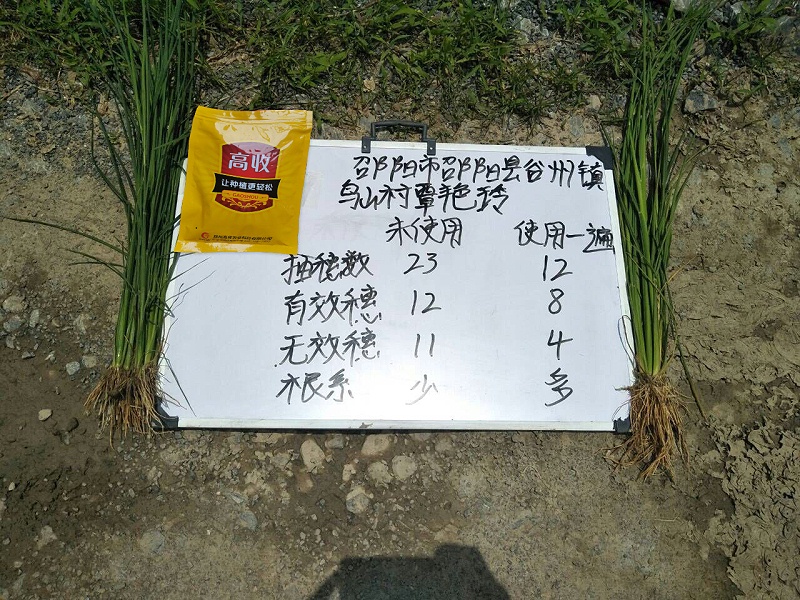 高收
让种植更轻松
GAOSHOU
邵阳市邵阳县谷州镇
乌山村覃艳玲
未使用 使用一遍
抽穗数 23 12
有效穗 12 8
无效穗 11 4
根系 少 多